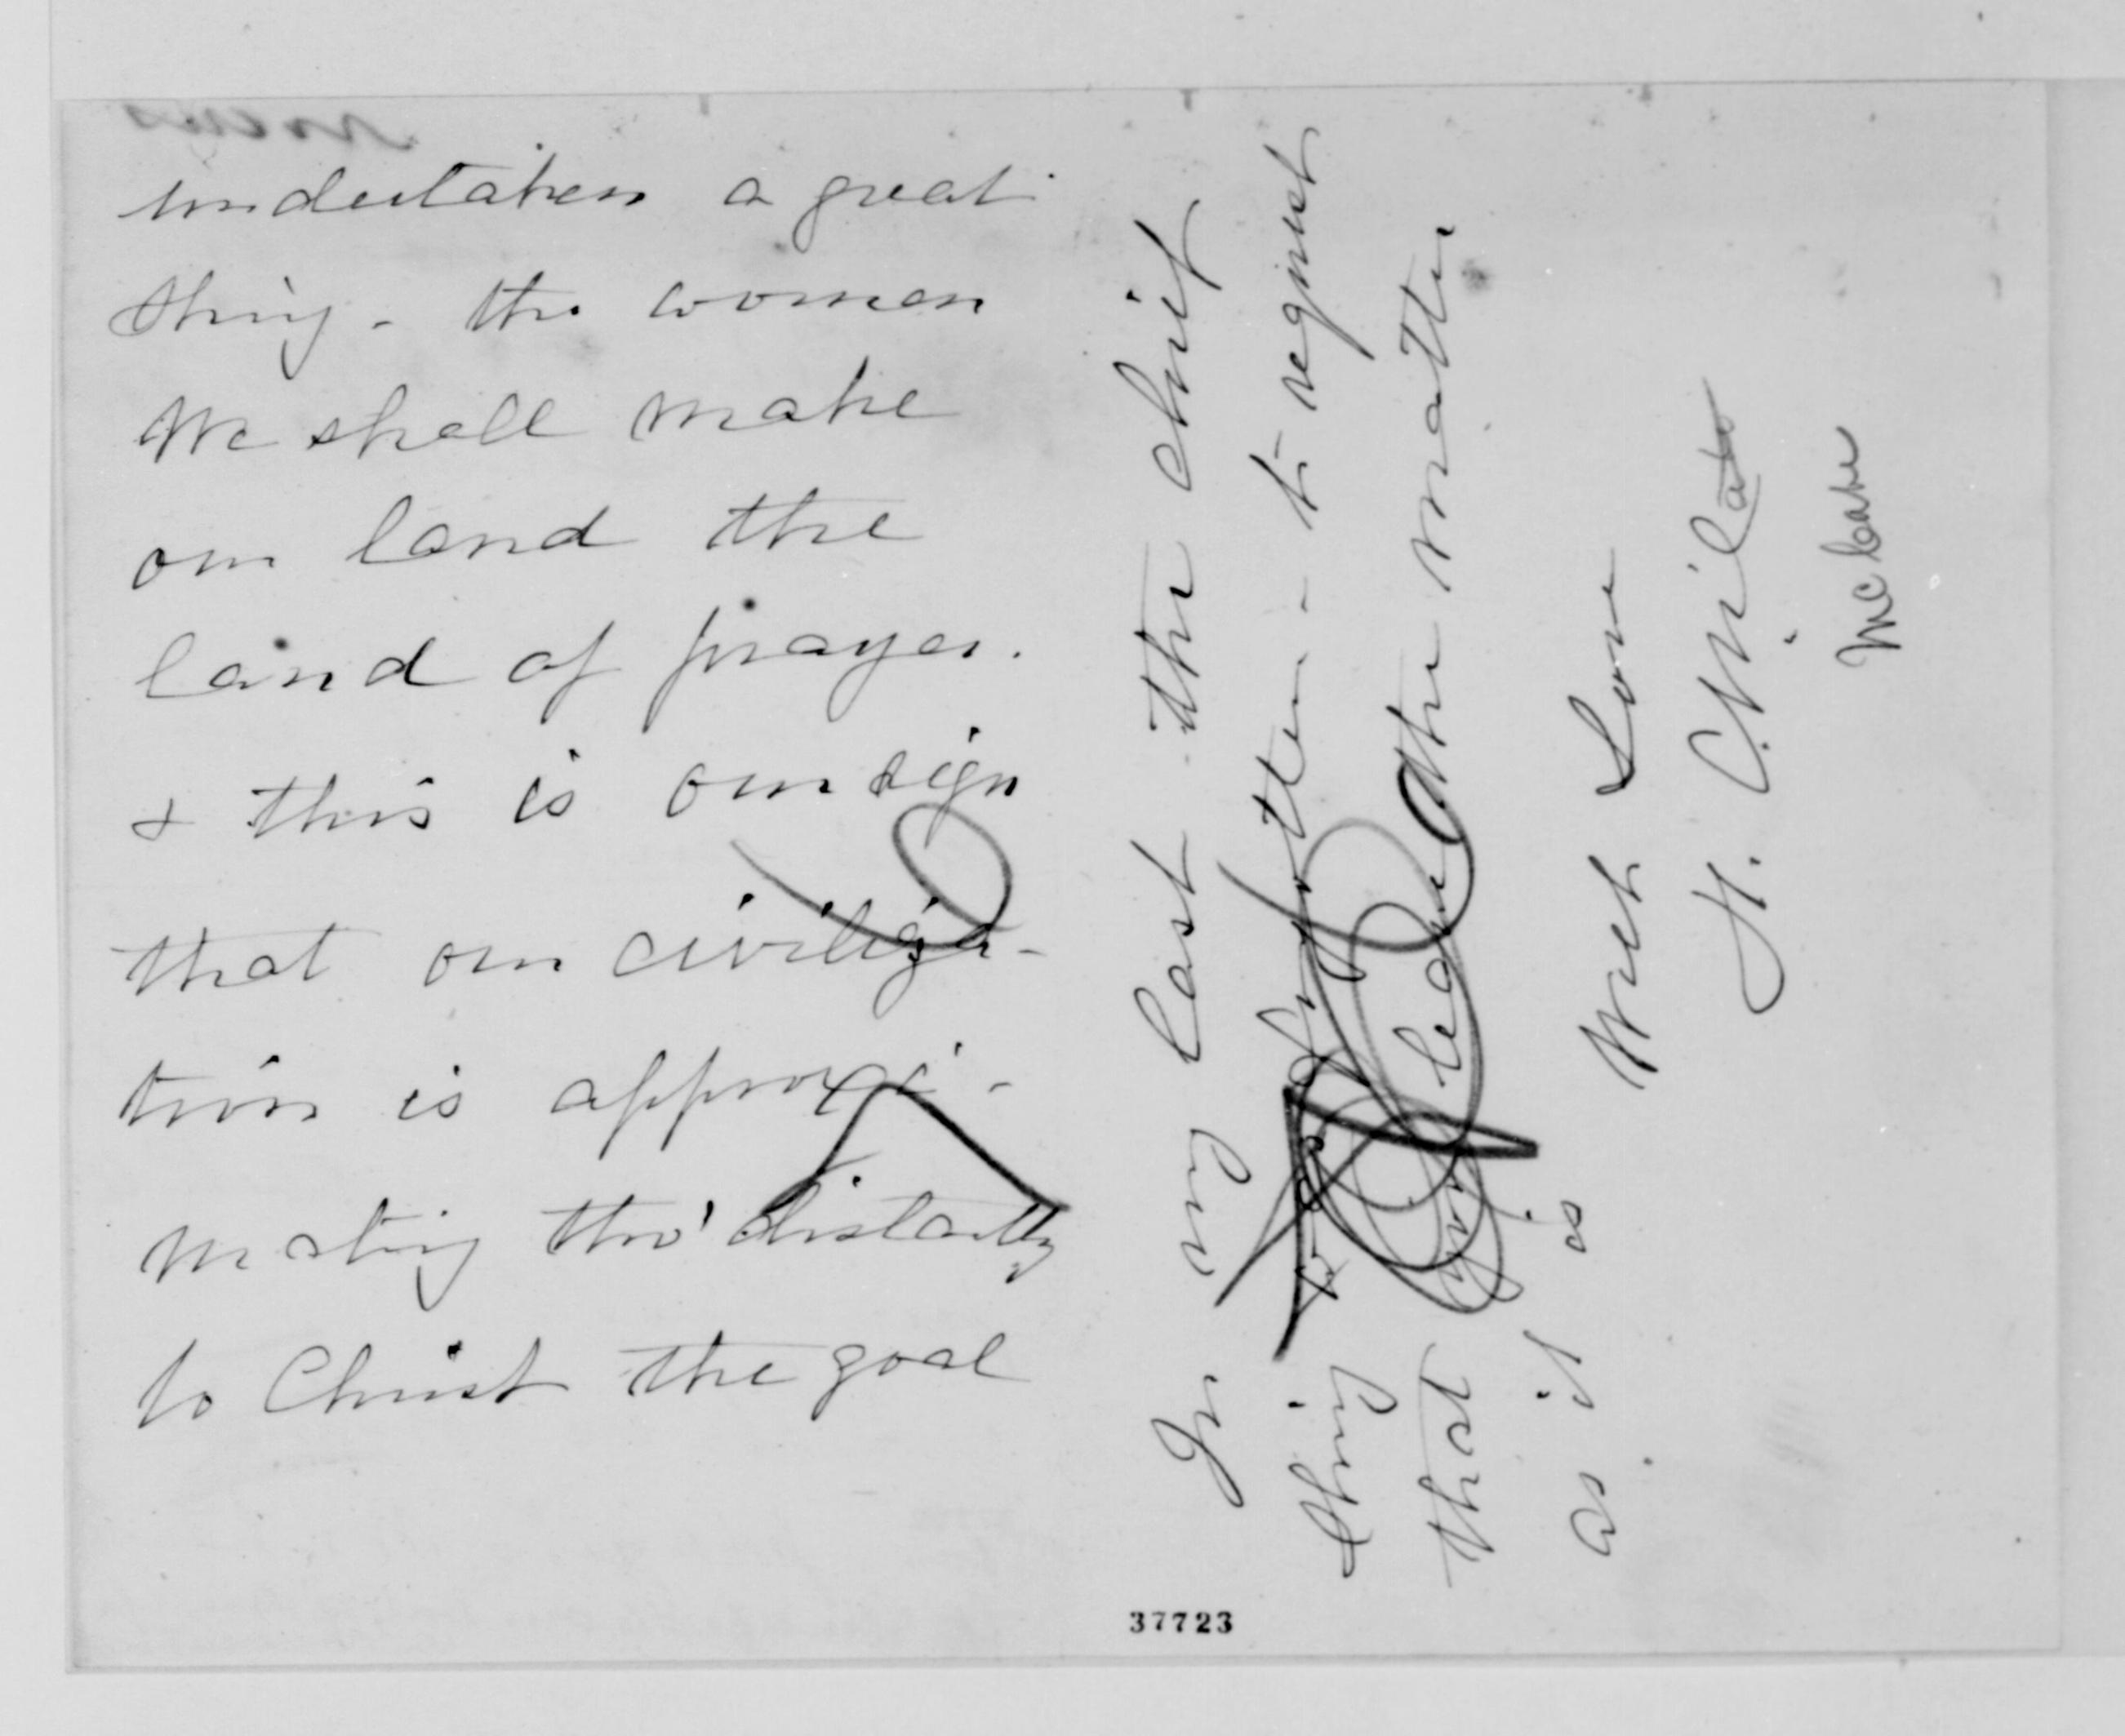 undertaken a great
thing - the women
We shall make
our land the
land of prayer.
& this is our sign
that our civiliza-
tion is approxi-
mating tho' distantly
to Christ the goal
In my last the chief
thing was forgotten - to request
that you leave the matter
as it is
With Love
H. C.
McCabe
37723